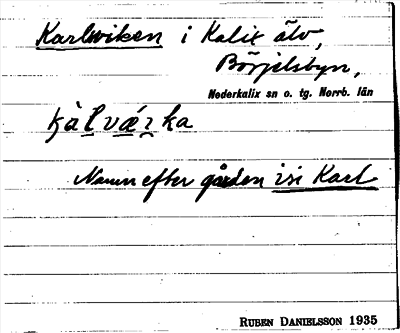 Karlsviken i Kalix älv,
Börjelsbyn,
Nederkalix sn o. tg. Norrb. län
Namn efter gården
Karl
RUBEN DANIELSSON 1935